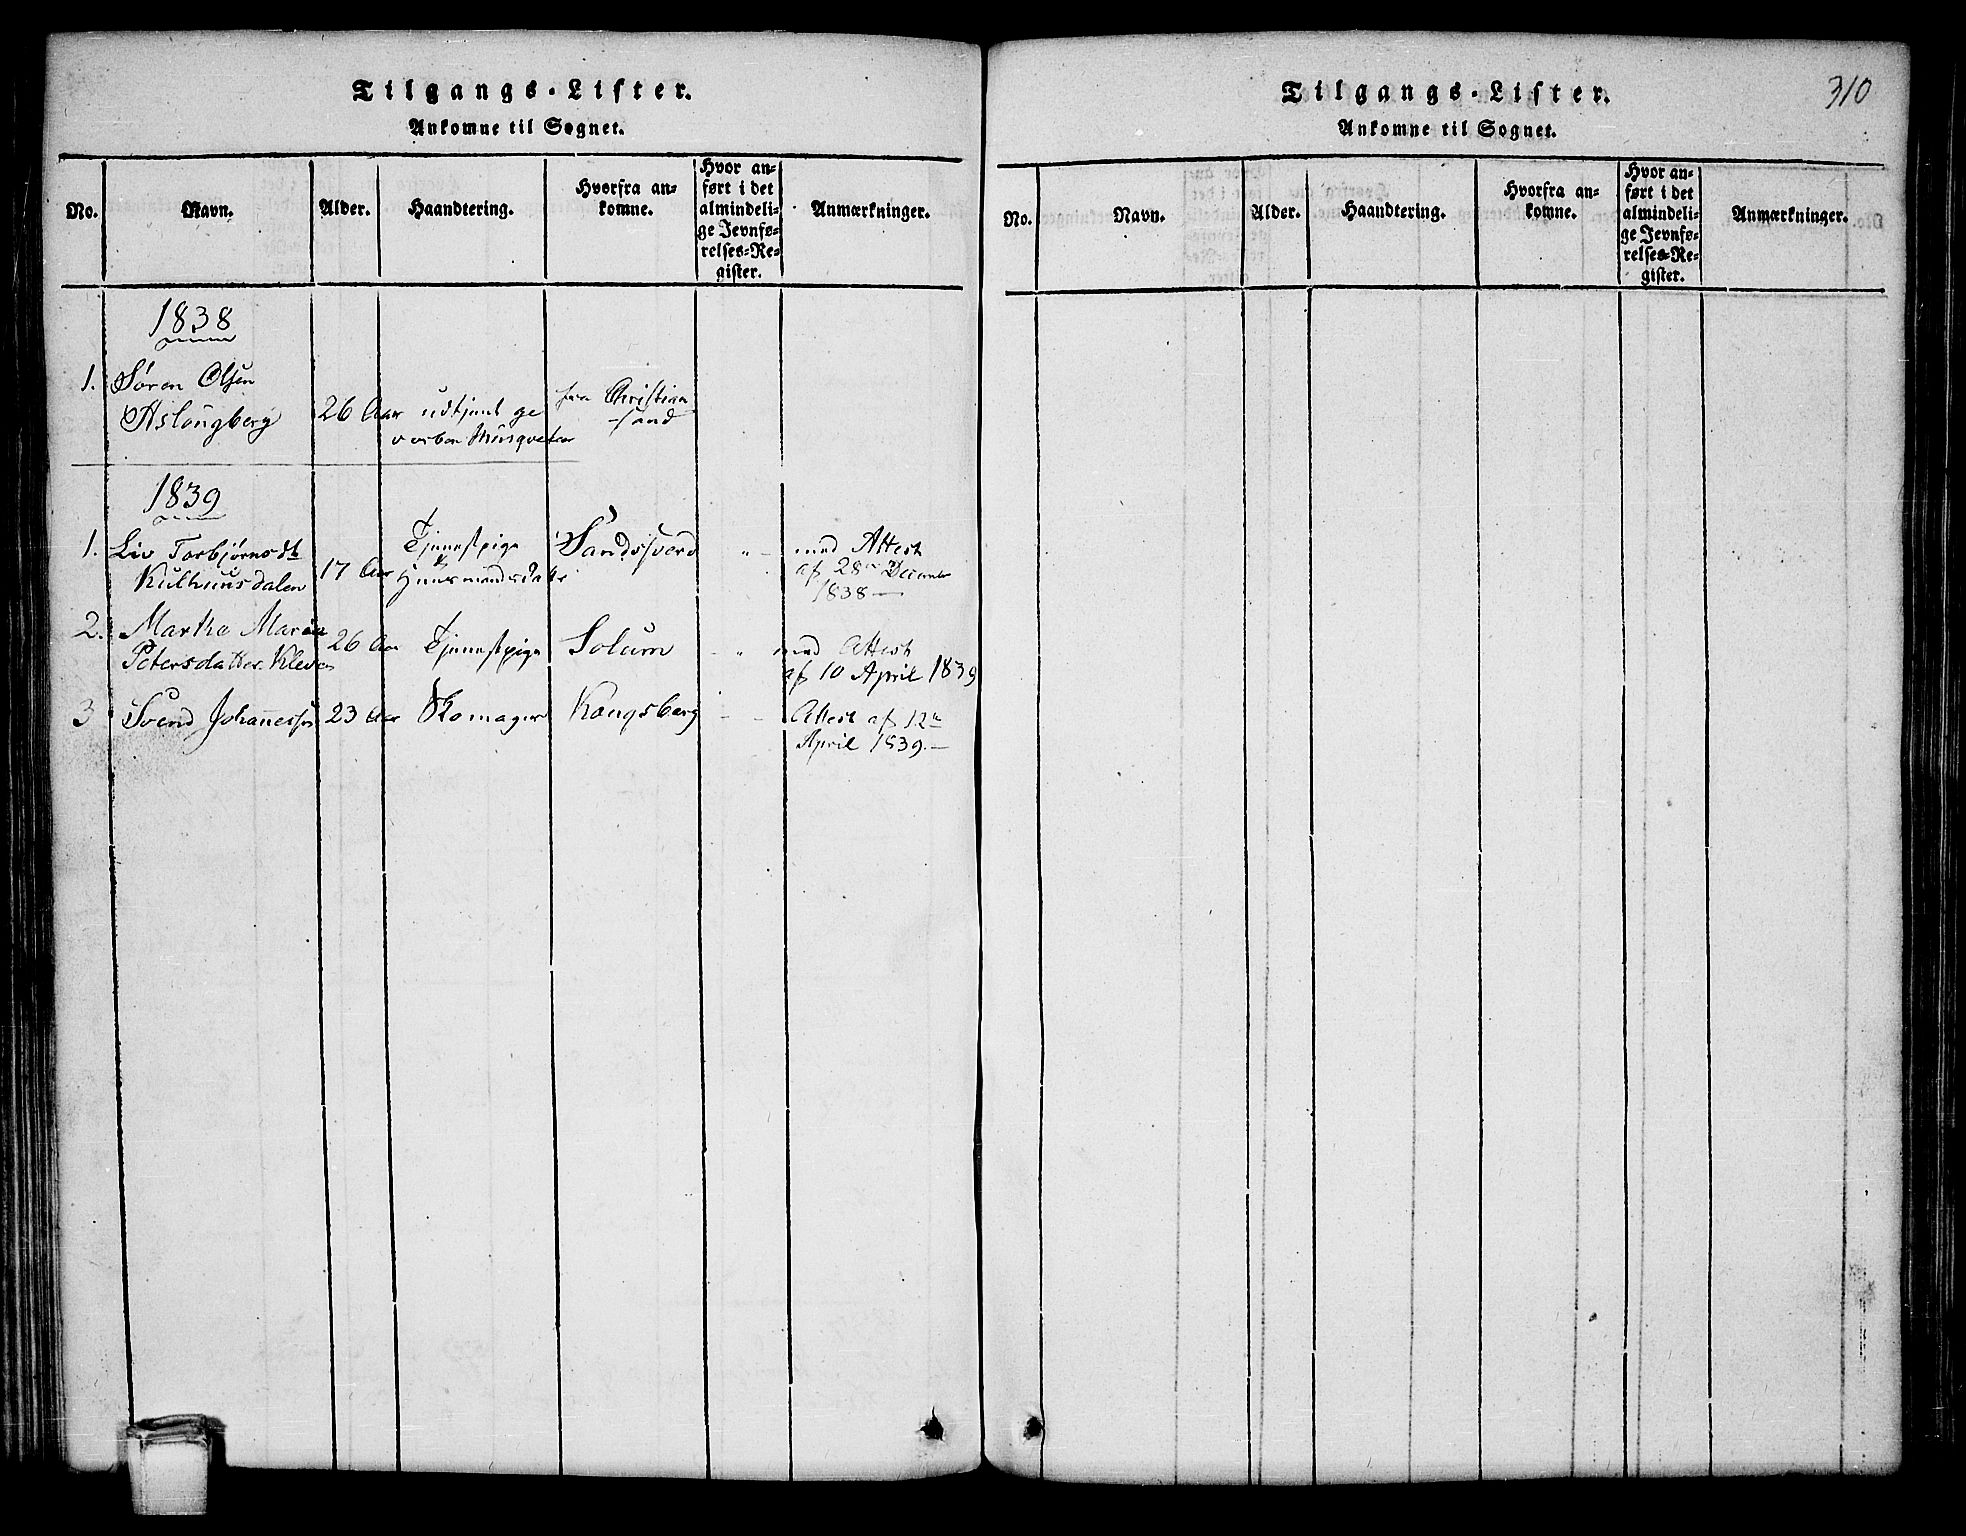 Tilgangs-Lister.
Ankomne til Sognet.
No. Navn. Alder. Haandtering. Hvorfra ankomne. Hvor anført i det almindelige Jevnførelses-Register. Anmærkninger.
1838
1. Søren Olsen
Aslougberg 26 Aar udtjent ge
vorben Musqveteer
fra Christian
sand
1839
1. Liv Torbjørnsdt
Kulhuusdalen 17 Aar Tjenestpige
Huusmandsdatter Sandsverd " med Attest
af 28de December
1838 —
2. Martha Maria
Petersdatter Kleven 26 Aar Tjenestpige Solum " med Attest
af 10 April 1839
3 Svend Johannessen 23 Aar Skomager Kongsberg - - Attest af 12te
April 1839. —
Tilgangs-Lister. 310
Ankomne til Sognet.
No. Navn. Alder. Haandtering. Hvorfra ankomne. Hvor anført i det almindelige Jevnførelses-Register. Anmærkninger.